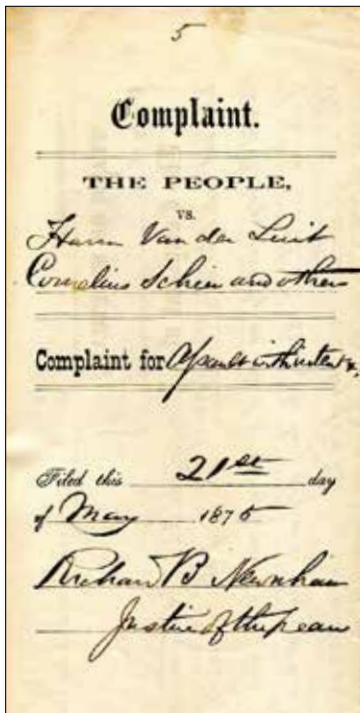 5
Complaint.
THE PEOPLE,
vs.
Harm Van der Luit
Cornelius Schien and others
Complaint for Assault with intent &c,
Filed this 21st day
of May 1875
Richard B Newnham
Justice of the peace